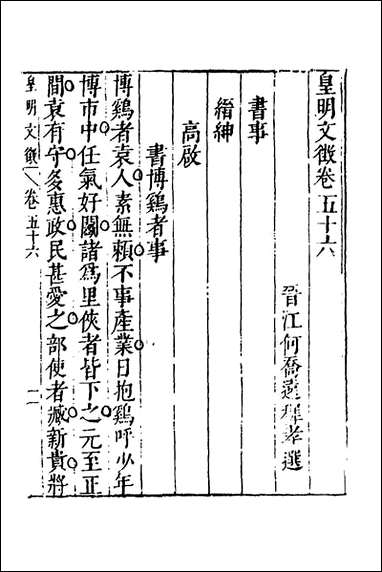 皇明文徵卷五十六
晉江何喬遠穉孝選
書事
縉紳
高啟
書博鷄者事
博鷄者袁人素無賴不事產業日抱鷄呼少年
博市中任氣好鬭諸爲里俠者皆下之元至正
間袁有守多惠政民甚愛之部使者臧新貴將
皇明文徵 卷五十六 一